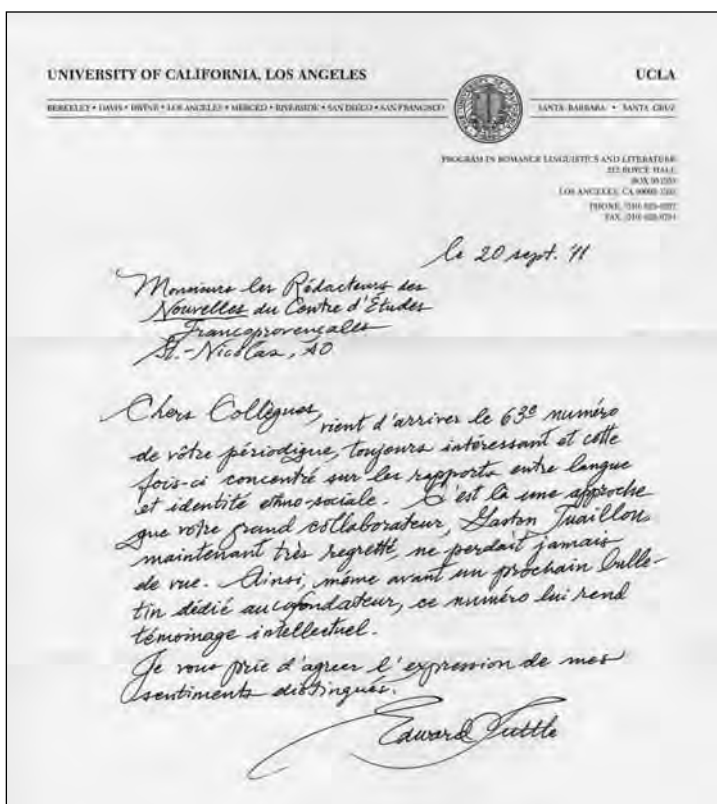 UNIVERSITY OF CALIFORNIA, LOS ANGELES
UCLA
BERKELEY • DAVIS • IRVINE • LOS ANGELES • MERCED • RIVERSIDE • SAN DIEGO • SAN FRANCISCO
SANTA BARBARA • SANTA CRUZ
PROGRAM IN ROMANCE LINGUISTICS AND LITERATURE
212 ROYCE HALL
BOX
LOS ANGELES, CA
PHONE: (310)
FAX: (310)
le 20 sept. '11
Messieurs les Rédacteurs des
Nouvelles du Centre d'Études
Francoprovençales
St.-Nicolas, AO
Chers Collègues,
vient d'arriver le 63e numéro
de vôtre périodique, toujours intéressant et cette
fois-ci concentré sur les rapports entre langue
et identité ethno-sociale. C'est là une approche
que votre grand collaborateur, Gaston Tuaillon,
maintenant très regretté, ne perdait jamais
de vue. Ainsi, même avant un prochain bulle-
tin dédié au cofondateur, ce numéro lui rend
témoinage intellectuel.
Je vous prie d'agréer l'expression de mes
sentiments distingués.
Edward Tuttle